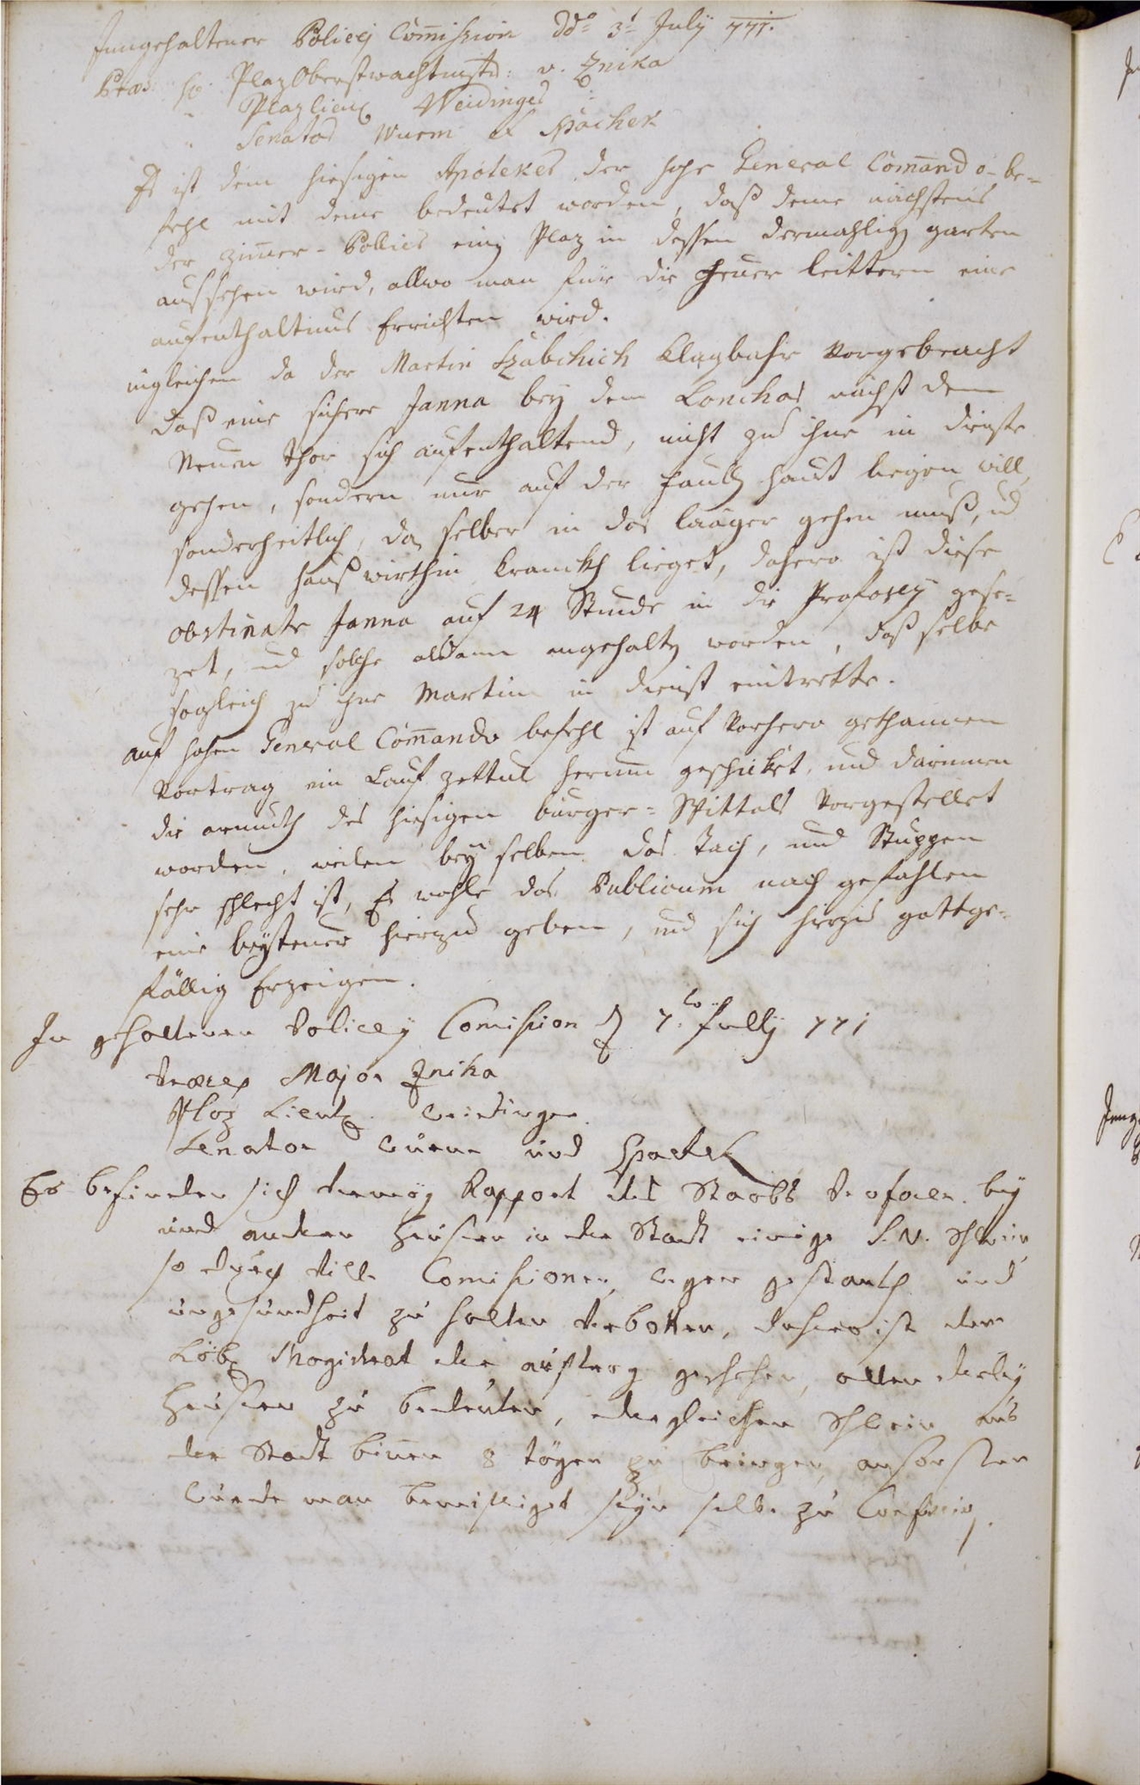 Inngehaltener Policeÿ Com̄ission Ddo 3t Julÿ 771.
Præs: H: Plaz Oberstwachtmstr: v. Znika
" Plaz lieut Weidinger
" Senator Wurm et Spacher
Es ist dem hiesigen Apoteker der hohe General Com̄ando-be-
fehl mit deme bedeutet worden, daß deme nächstens
der Zim̄er-Pollier einen Plaz in dessen dermahligen garten
aussehen wird, allwo man für die feuer leittern eine
aufenthaltnus Errichten wird.
ingleichen da der Martin Szabchich klagbahr vorgebracht
daß eine sichere Janna beÿ dem Lonchar nächst dem
Neuen thor sich aufenthaltend, nicht zu ihme in dienste
gehen, sondern nur auf der faulen haut liegen will,
sonderheitlich, da selber in das laager gehen muß, und
dessen haußwirthin kranckh lieget, dahero ist diese
obstinate Janna auf 24 Stunde in die Profosey gese-
zet, und solche alsdann angehalten worden, daß selbe
sogleich zu ihme Martin in dienst eintrette.
auf hohen General Com̄ando befehl ist auf vorhero gethannen
Vortrag ein Lauf zettul herum̄ geschicket, und darinnen
die armuth des hiesigen bürger-Spittals vorgestellet
worden, weilen beÿ selben das Tach, und Stuppen
sehr schlecht ist, Es wohle das Publicum nach gefahlen
eine beÿsteuer hierzu geben, und sich hierzu gottge-
fällig Erzeigen.
In gehaltener Policeÿ Comission den 7. Jullÿ 771
Major Znika
Plaz Lieut. Weidinger
Senator Wurm und Spacher
Es befinden sich vermög Rapport des Staabs Profosen beÿ
und andern Heusern in der Stadt einige S.V. Schwein
so durch Comissionen wegen gestanckh und
ungesundheit zu halten verbotten, dahero ist dem
Löb. Magistrat der auftrag geschehen, allen derleÿ
Heusern zu bedeuten, dergleichen Schwein aus
der Stadt binen 8 tägen zu bringen, ansonsten
wurde man bemüssiget seÿn selbe zu Confisciren.